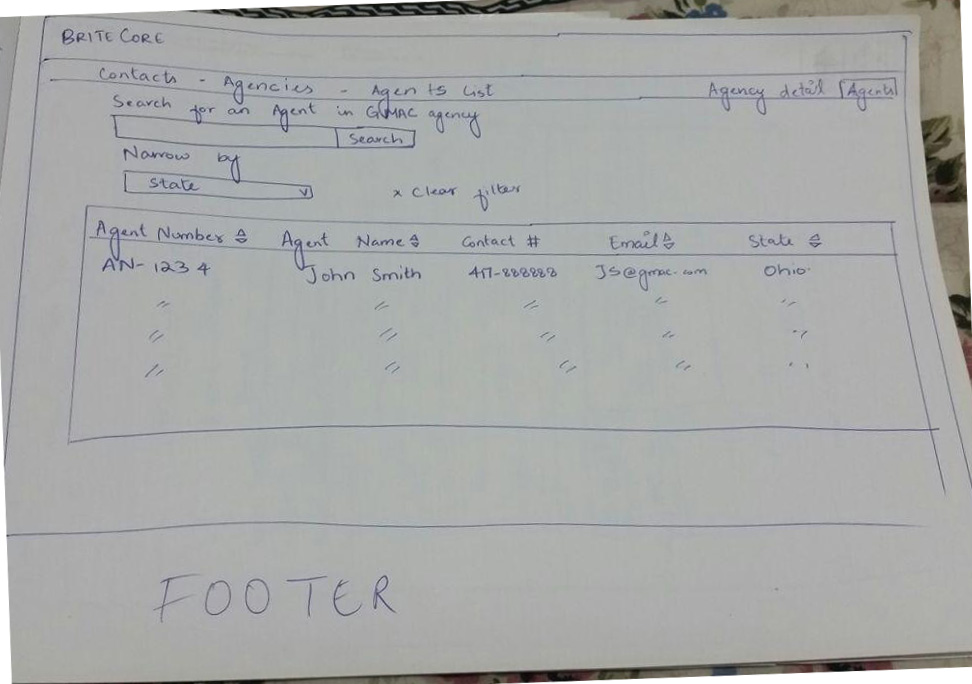 BRITE CORE
Contacts - Agencies - Agents List Agency detail Agents
Search for an Agent in GMAC agency
Search
Narrow by
State v x Clear filter
Agent Number Agent Name Contact # Email State
AN-1234 John Smith 417-888888 JS@gmac.com Ohio
〃 〃 〃 〃 〃
〃 〃 〃 〃 〃
〃 〃 〃 〃 〃
FOOTER